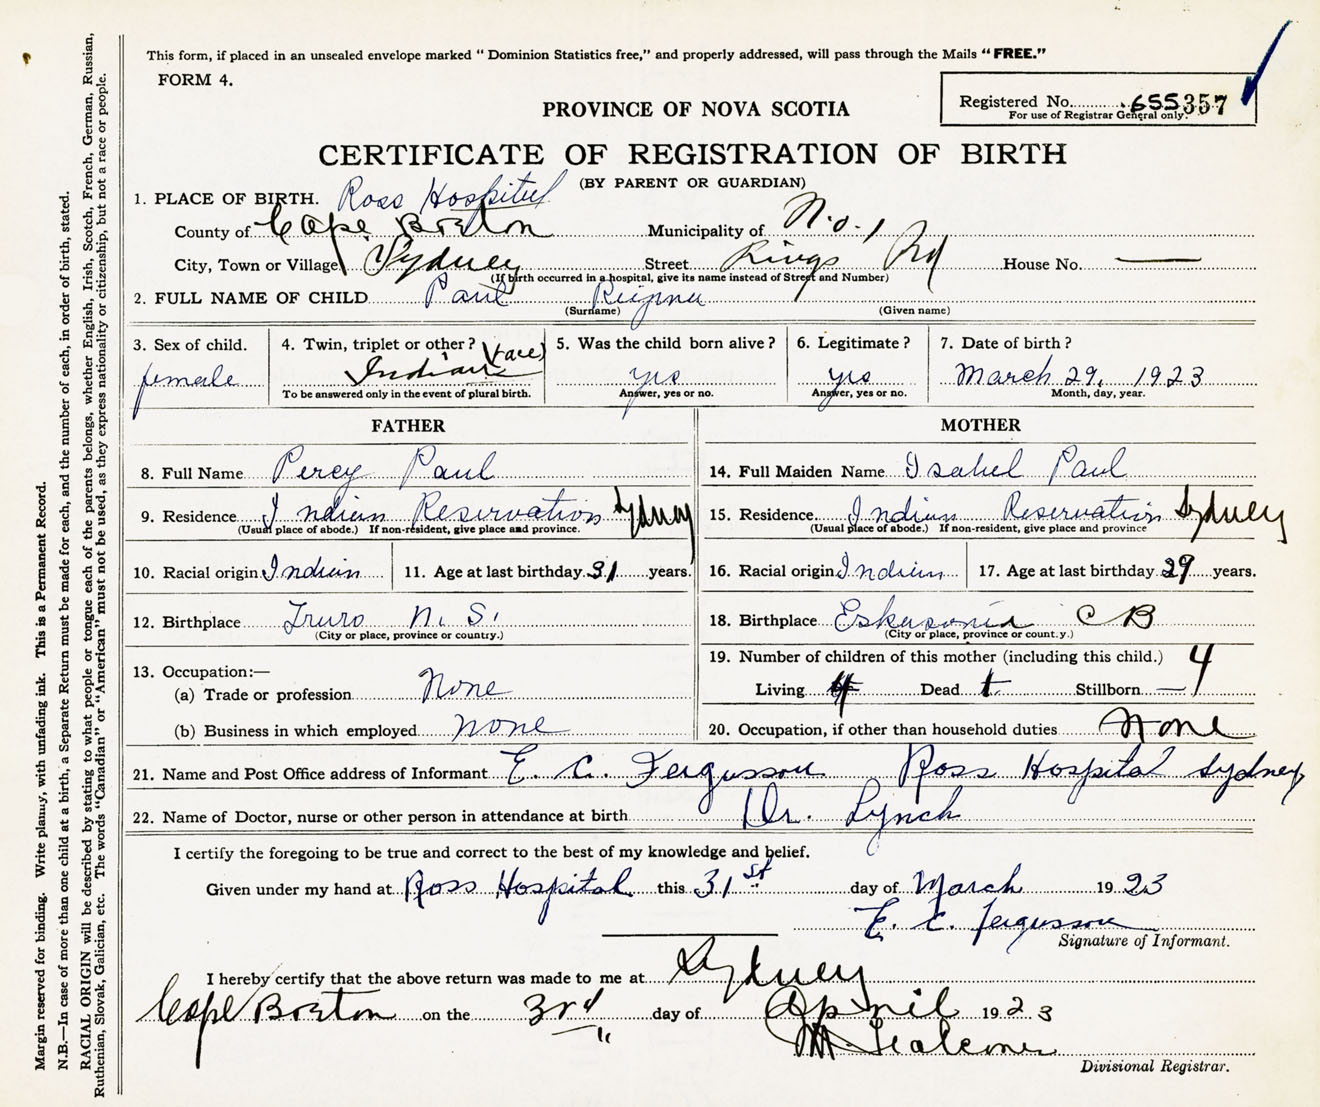 This form, if placed in an unsealed envelope marked "Dominion Statistics free," and properly addressed, will pass through the Mails "FREE."
FORM 4.
Registered No. 655357
For use of Registrar General only.
PROVINCE OF NOVA SCOTIA
CERTIFICATE OF REGISTRATION OF BIRTH
(BY PARENT OR GUARDIAN)
1. PLACE OF BIRTH. Ross Hospital
County of Cape Breton Municipality of No. 1
City, Town or Village Sydney Street Kings Rd House No. —
(If birth occurred in a hospital, give its name instead of Street and Number)
2. FULL NAME OF CHILD Paul
(Surname) (Given name)
3. Sex of child. female
4. Twin, triplet or other? Indian (race)
To be answered only in the event of plural birth.
5. Was the child born alive? yes
Answer, yes or no.
6. Legitimate? yes
Answer, yes or no.
7. Date of birth? March 29, 1923
Month, day, year.
FATHER
8. Full Name Percy Paul
9. Residence Indian Reservation Sydney
(Usual place of abode.) If non-resident, give place and province.
10. Racial origin Indian 11. Age at last birthday 31 years.
12. Birthplace Truro N. S.
(City or place, province or country.)
13. Occupation:—
(a) Trade or profession None
(b) Business in which employed none
MOTHER
14. Full Maiden Name Isabel Paul
15. Residence Indian Reservation Sydney
(Usual place of abode.) If non-resident, give place and province
16. Racial origin Indian 17. Age at last birthday 29 years.
18. Birthplace Eskasonia C B
(City or place, province or count.y.)
19. Number of children of this mother (including this child.) 4
Living 4 Dead Stillborn —
20. Occupation, if other than household duties None
21. Name and Post Office address of Informant E. C. Fergusson Ross Hospital Sydney
22. Name of Doctor, nurse or other person in attendance at birth Dr. Lynch
I certify the foregoing to be true and correct to the best of my knowledge and belief.
Given under my hand at Ross Hospital this 31st day of March 1923
E. C. Fergusson
Signature of Informant.
I hereby certify that the above return was made to me at Sydney
Cape Breton on the 3rd day of April 1923
Divisional Registrar.
Margin reserved for binding. Write plainly, with unfading ink. This is a Permanent Record.
N.B.—In case of more than one child at a birth, a Separate Return must be made for each, and the number of each, in order of birth, stated.
RACIAL ORIGIN will be described by stating to what people or tongue each of the parents belongs, whether English, Irish, Scotch, French, German, Russian,
Ruthenian, Slovak, Galician, etc. The words "Canadian" or "American" must not be used, as they express nationality or citizenship, but not a race or people.